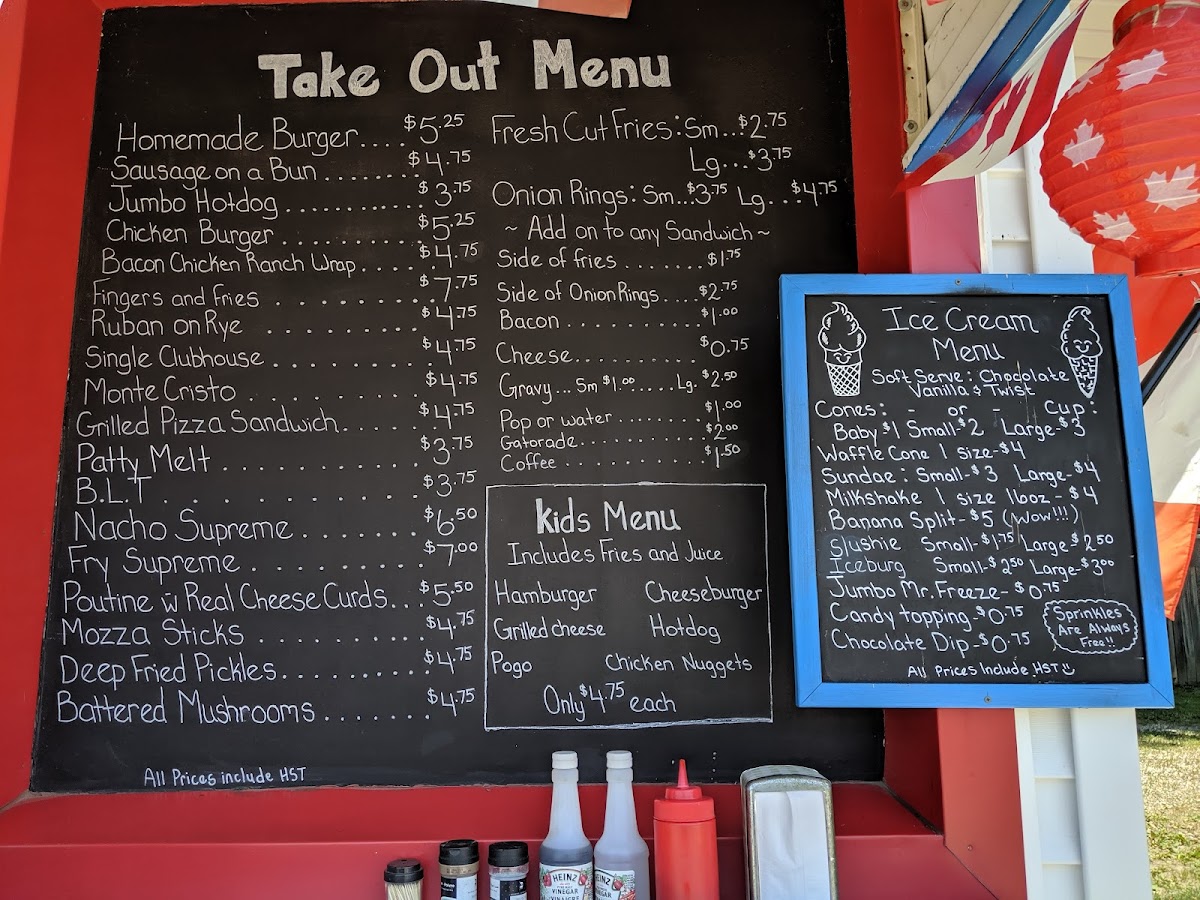 Take Out Menu
Homemade Burger.... $5.25
Sausage on a Bun ....... $4.75
Jumbo Hotdog ............. $3.75
Chicken Burger ............ $5.25
Bacon Chicken Ranch Wrap..... $4.75
Fingers and fries ............ $7.75
Ruban on Rye ............ $4.75
Single Clubhouse ............ $4.75
Monte Cristo ............ $4.75
Grilled Pizza Sandwich...... $4.75
Patty Melt ............ $3.75
B.L.T ............... $3.75
Nacho Supreme ........ $6.50
Fry Supreme .......... $7.00
Poutine w Real Cheese Curds... $5.50
Mozza Sticks ........... $4.75
Deep Fried Pickles.......... $4.75
Battered Mushrooms ....... $4.75
All Prices include HST
Fresh Cut Fries: Sm...$2.75
Lg...$3.75
Onion Rings: Sm...$3.75 Lg...$4.75
~ Add on to any Sandwich ~
Side of fries ....... $1.75
Side of Onion Rings .... $2.75
Bacon ............ $1.00
Cheese............ $0.75
Gravy... Sm $1.00..... Lg. $2.50
Pop or water .......... $1.00
Gatorade............. $2.00
Coffee ............. $1.50
Kids Menu
Includes Fries and Juice
Hamburger Cheeseburger
Grilled cheese Hotdog
Pogo Chicken Nuggets
Only $4.75 each
Ice Cream
Menu
Soft Serve: Chocolate
Vanilla & Twist
Cones: - or - Cup:
Baby $1 Small-$2 Large-$3
Waffle Cone 1 size-$4
Sundae: Small-$3 Large-$4
Milkshake 1 size 16oz-$4
Banana Split-$5 (Wow!!!)
Slushie Small-$1.75 Large-$2.50
Iceburg Small-$2.50 Large-$3.00
Jumbo Mr. Freeze-$0.75
Candy topping-$0.75
Chocolate Dip-$0.75
Sprinkles
Are Always
Free!!
All Prices Include HST
HEINZ
VINEGAR
VINAIGRE
HEINZ
VINEGAR